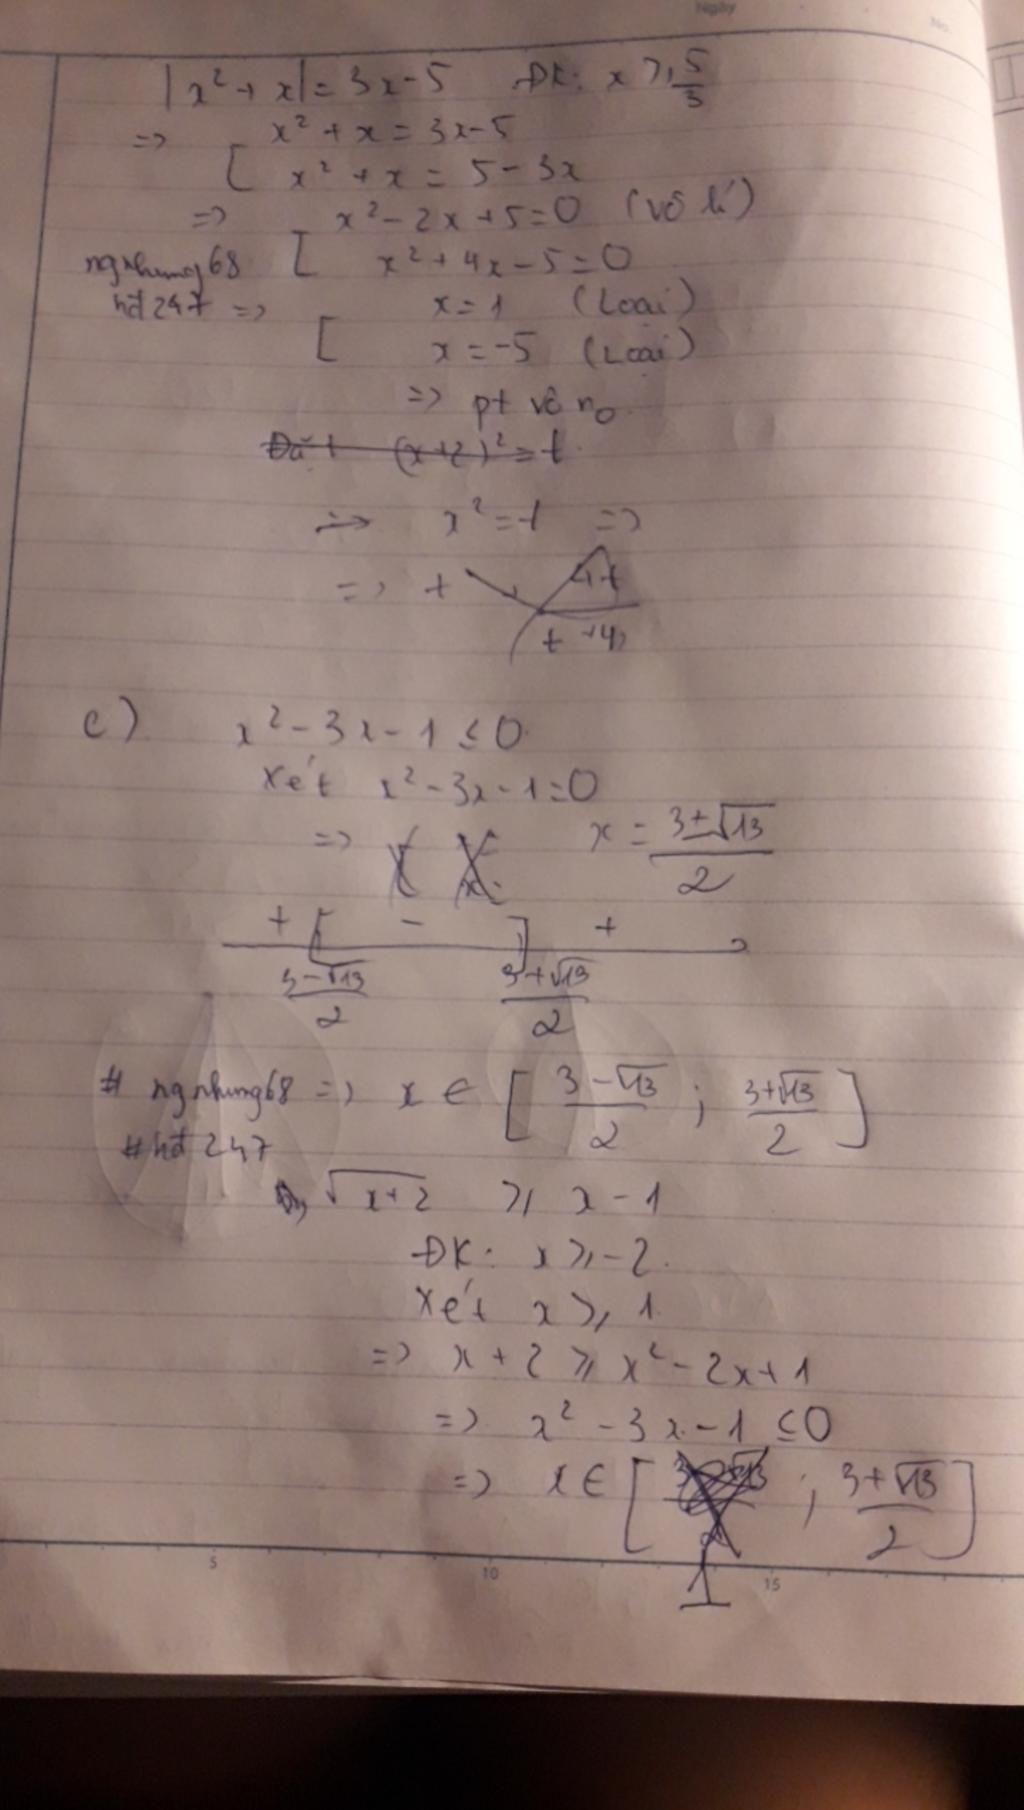 Ngày
No.
|x² + x| = 3x - 5 ĐK: x ≥ 5/3
=> [ x² + x = 3x - 5
x² + x = 5 - 3x
=> [ x² - 2x + 5 = 0 (vô lí)
x² + 4x - 5 = 0
ngnhung68
hđ247
=> [ x = 1 (Loại)
x = -5 (Loại)
=> pt vô n₀
Đặt (x+2)² = t
=> x² = t =>
=> t
t + 4
c) x² - 3x - 1 ≤ 0
Xét x² - 3x - 1 = 0
=> x = (3 ± √13)/2
+ [ - ] +
(3 - √13)/2 (3 + √13)/2
# ngnhung68 => x ∈ [ (3 - √13)/2 ; (3 + √13)/2 ]
# hđ247
√(x+2) ≥ x - 1
ĐK: x ≥ -2.
Xét x ≥ 1
=> x + 2 ≥ x² - 2x + 1
=> x² - 3x - 1 ≤ 0
=> x ∈ [ 1 ; (3 + √13)/2 ]
5 10 15